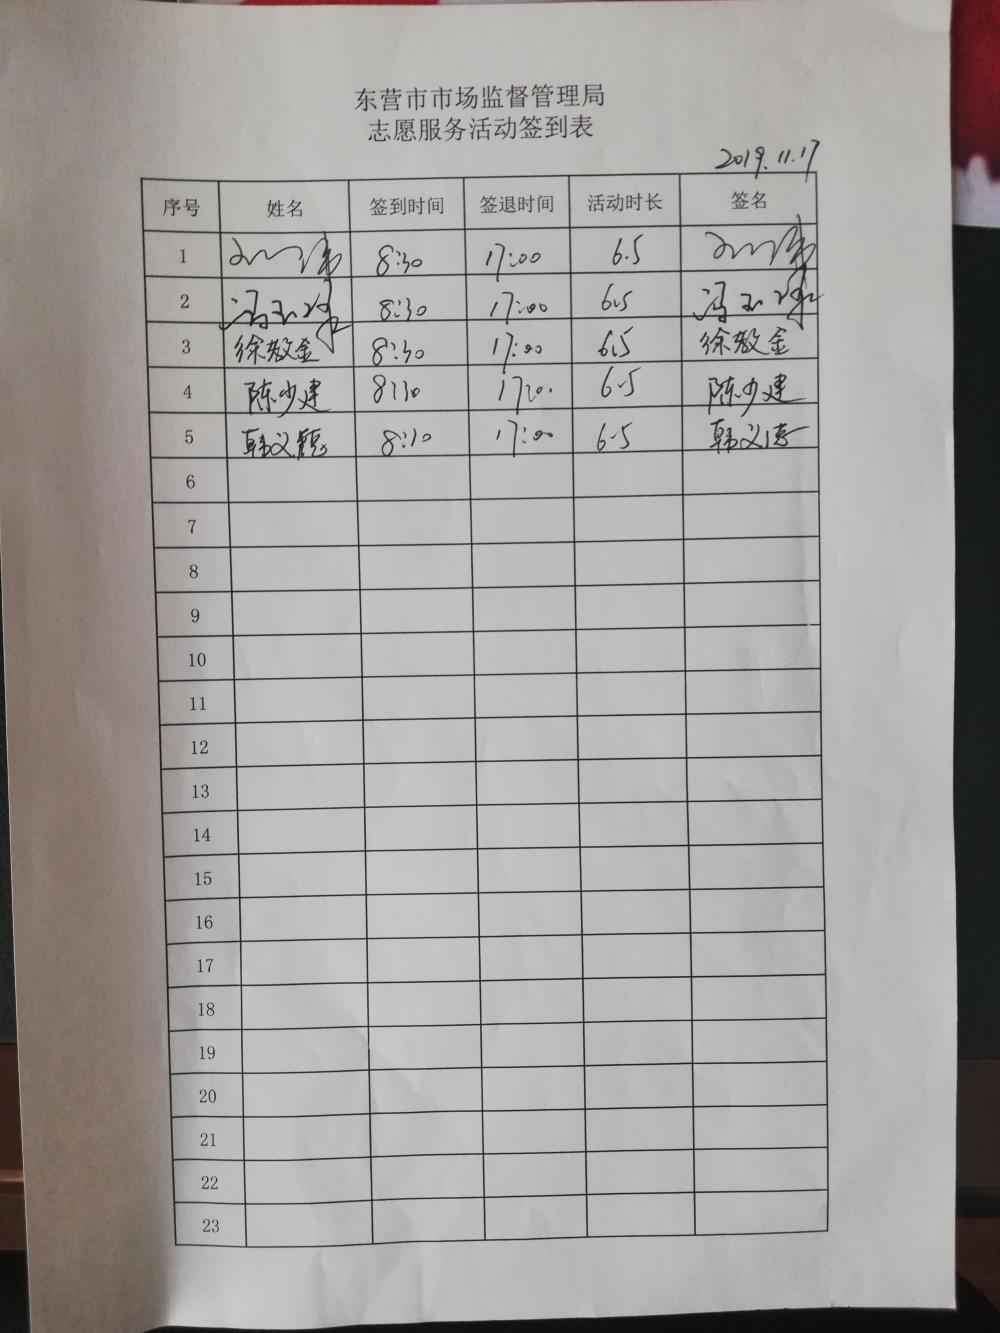 东营市市场监督管理局
志愿服务活动签到表
2019.11.17
序号 姓名 签到时间 签退时间 活动时长 签名
1 8:30 17:00 6.5
2 冯玉 8:30 17:00 6.5 冯玉
3 徐敬金 8:30 17:00 6.5 徐敬金
4 陈少建 8:30 17:00 6.5 陈少建
5 韩义德 8:30 17:00 6.5 韩义德
6
7
8
9
10
11
12
13
14
15
16
17
18
19
20
21
22
23